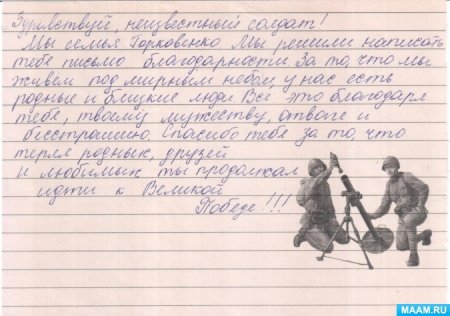 Здравствуй, неизвестный солдат!
Мы семья Горковенко. Мы решили написать
тебе письмо благодарности за то, что мы
живем под мирным небом, у нас есть
родные и близкие люди. Всё это благодаря
тебе, твоему мужеству, отваге и
бесстрашию. Спасибо тебе за то, что
теряя родных, друзей
и любимых ты продолжал
идти к Великой
Победе!!!
MAAM.RU